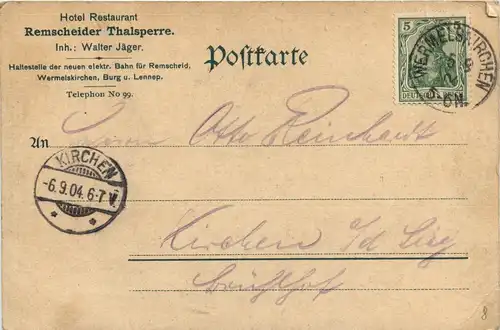 Hotel Restaurant
Remscheider Thalsperre.
Inh.: Walter Jäger.
Haltestelle der neuen elektr. Bahn für Remscheid,
Wermelskirchen, Burg u. Lennep.
Telephon No 99.
Postkarte
5
WERMELSKIRCHEN
An
Herrn Otto Reinhardt
KIRCHEN
-6.9.04.6-7 V.
Kirchen a/d Sieg
Brühlhof
8